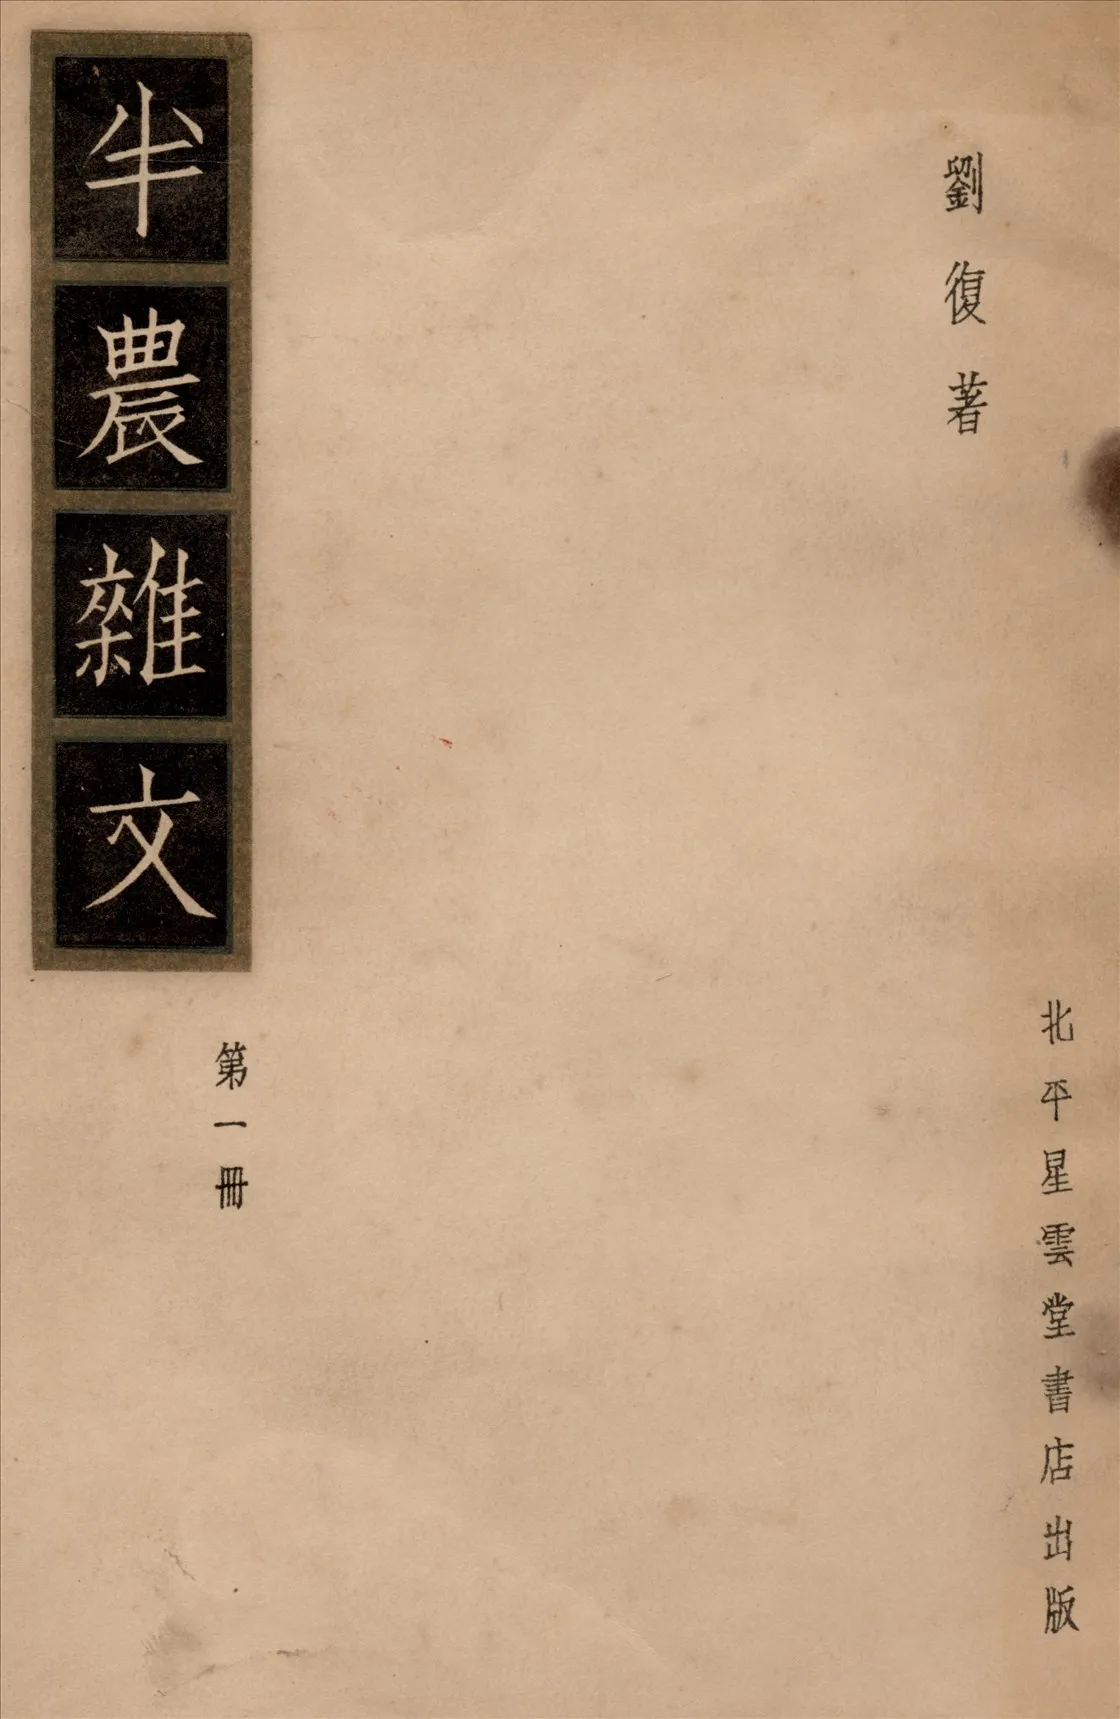 劉復著
北平星雲堂書店出版
半農雜文
第一冊